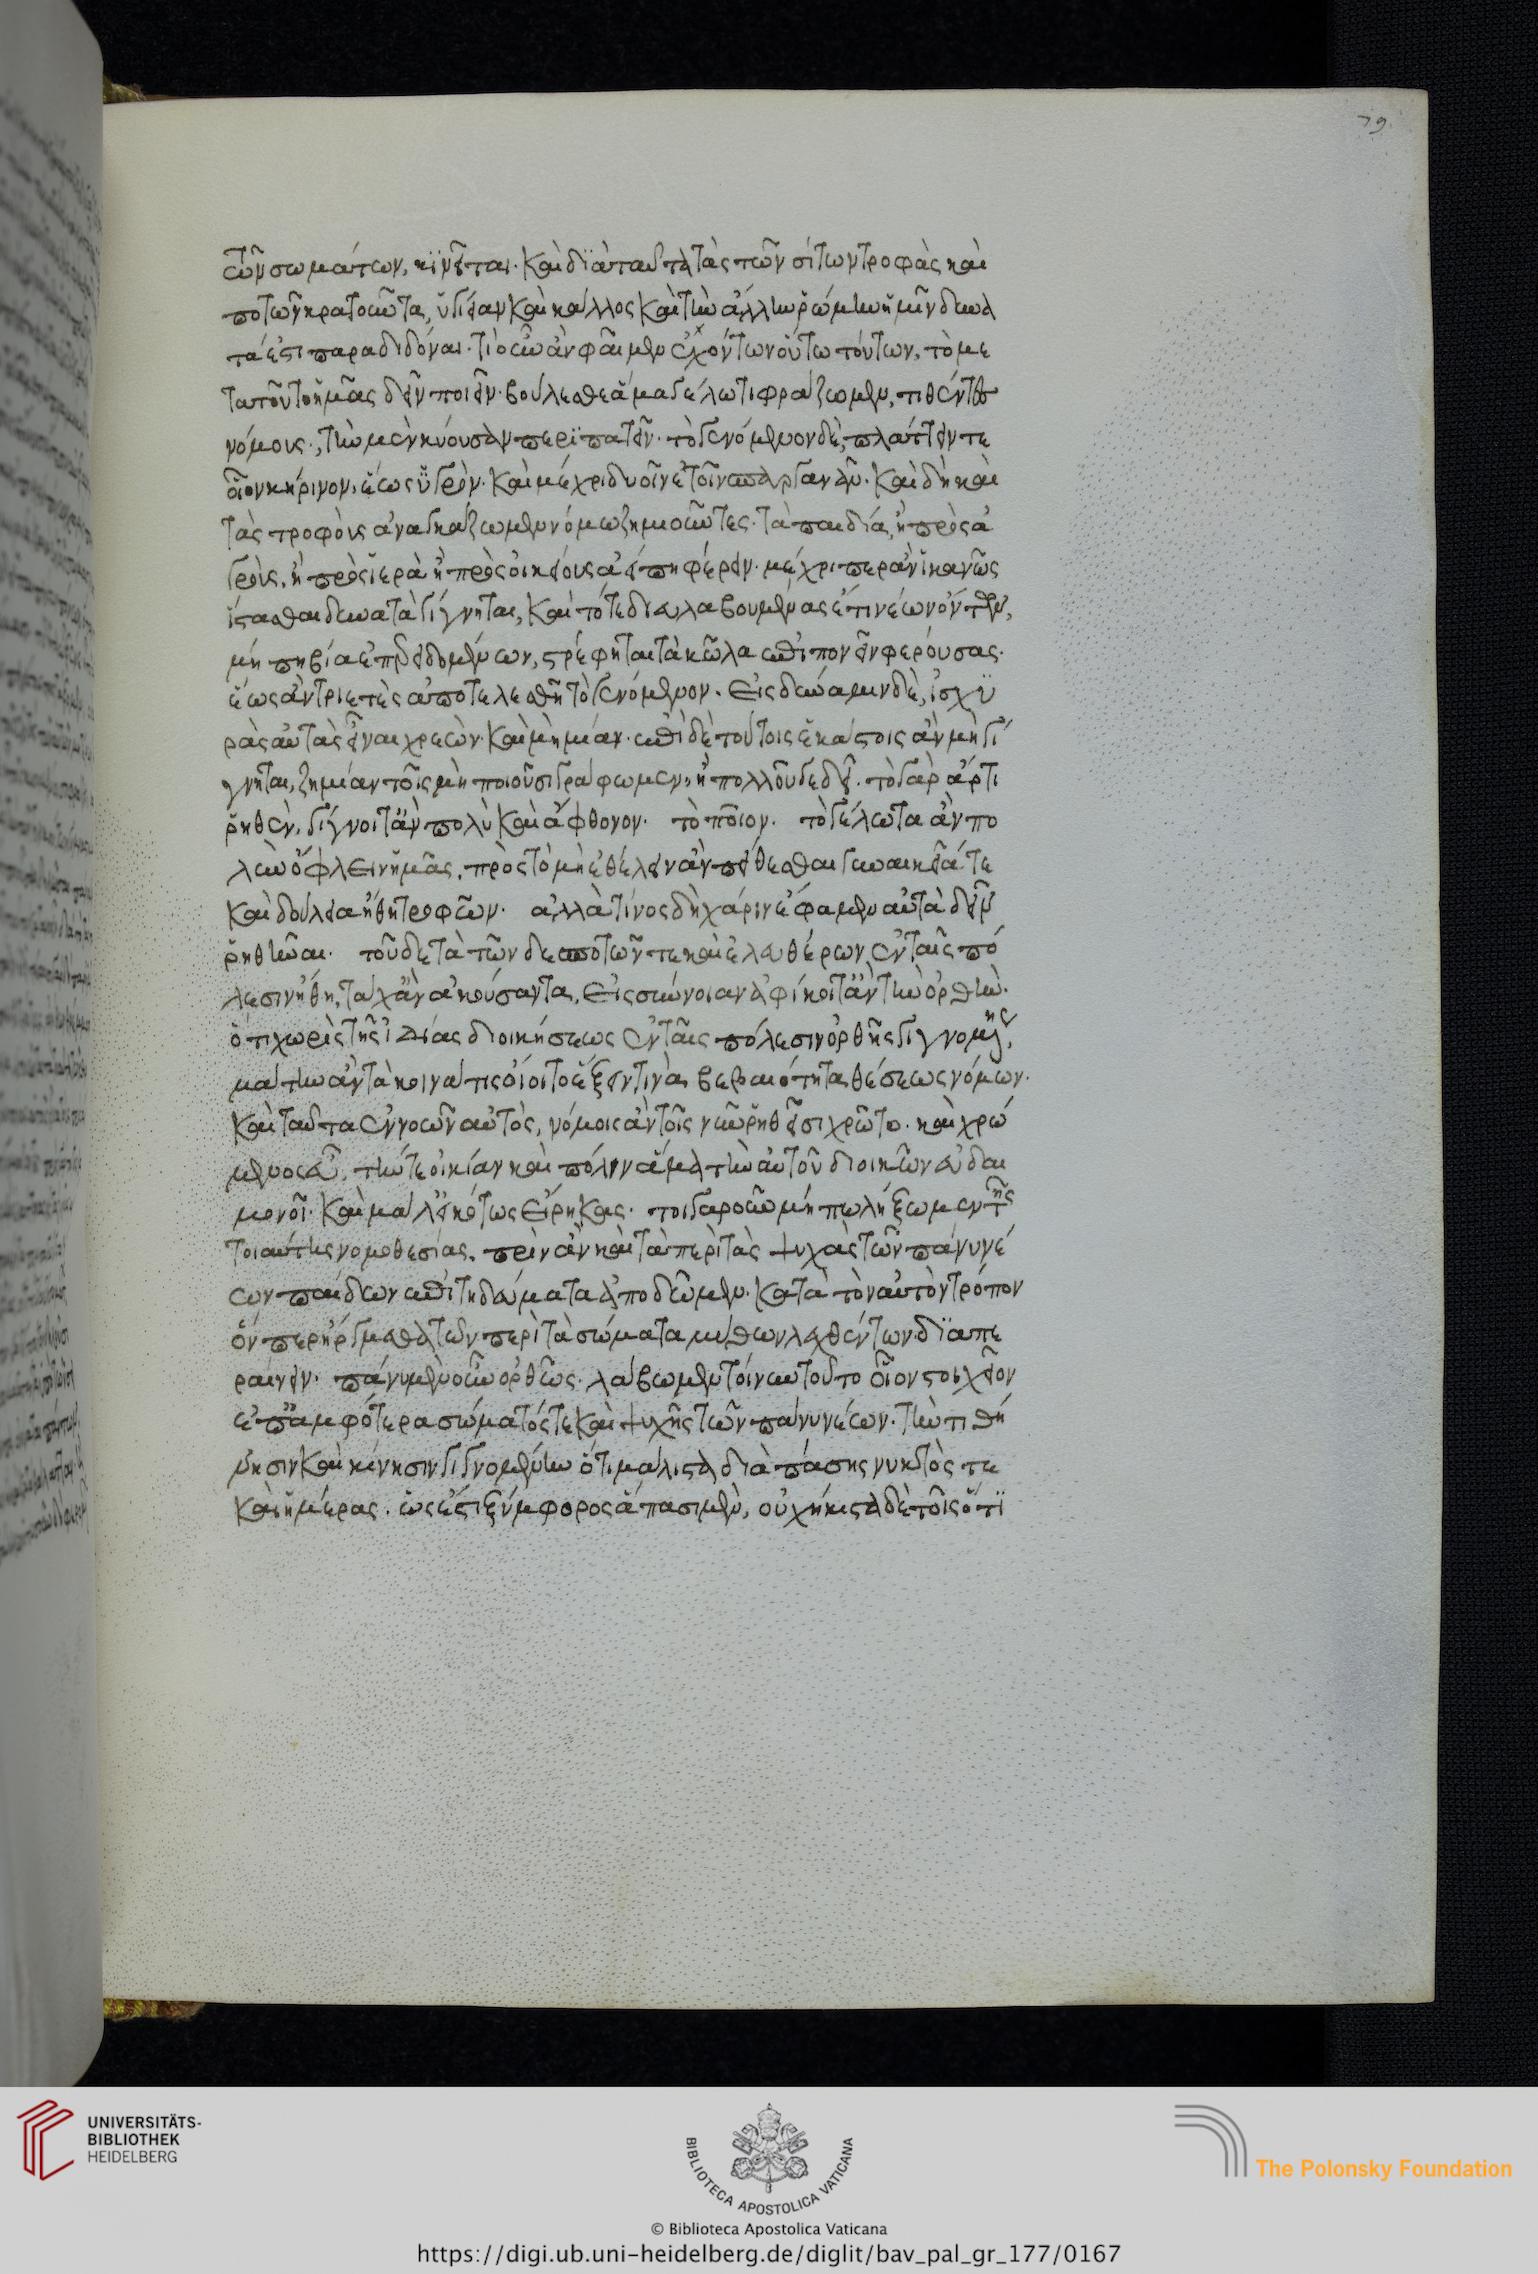 τῶν σωμάτων, κϊνεῖται. Καὶ δϊὰ ταῦτα τὰς τῶν σίτων τροφὰς καὶ
ποτῶν κρατοῦντα, ὑγίειαν καὶ κάλλος καὶ τὴν ἄλλην ῥώμην ἡμῖν δυνα
τά ἐστι παραδιδόναι. τί οὖν ἂν φαῖμεν ἐχόντων οὕτω τούτων, τὸ με
τὰ τοῦτο ἡμᾶς δεῖν ποιεῖν. βούλεσθε ἅμα γέλωτι φράζωμεν, τιθέντες
νόμους, τὴν μὲν κύουσαν περϊπατεῖν. τὸ γενόμενον δὲ, πλάττειν τε
οἷον κήρινον, ἕως ὑγρόν. Καὶ μέχρι δυοῖν ἐτοῖν σπαργανᾶν. Καὶ δὴ καὶ
τὰς τροφοὺς ἀναγκάζωμεν νόμω ζημιοῦντες. τὰ παιδία, ἢ πρὸς ἀ
γροὺς, ἢ πρὸς ἱερὰ ἢ πρὸς οἰκείους ἀεί πη φέρειν. μέχρι περ ἂν ἱκανῶς
ἵστασθαι δυνατὰ γίγνηται, Καὶ τότε διευλαβουμένας ἔτι νέων ὄντων,
μή πη βία ἐπερειδομένων, στρέφηται τὰ κῶλα ἐπιπονεῖν φερούσας.
ἕως ἂν τριετὲς ἀποτελεσθῆ τὸ γενόμενον. Εἰς δύναμιν δὲ, ἰσχϋ
ρὰς αὐτὰς εἶναι χρεὼν. Καὶ μὴ μίαν. ἐπὶ δὲ τούτοις ἑκάστοις ἂν μὴ γί
γνηται, ζημίαν τοῖς μὴ ποιοῦσι γράφωμεν, ἢ πολλοῦ γε δεῖ. τὸ γὰρ ἄρτι
ῥηθὲν, γίγνοιτ' ἂν πολὺ καὶ ἄφθονον. τὸ ποῖον. τὸ γέλωτα ἂν πο
λὺν ὀφλεῖν ἡμᾶς, πρὸς τὸ μὴ ἐθέλειν ἂν πείθεσθαι γυναικεῖά τε
καὶ δούλεια ἤθη τροφῶν. ἀλλὰ τίνος δὴ χάριν ἔφαμεν αὐτὰ δεῖν
ῥηθῆναι. τοῦδε τὰ τῶν δεσποτῶν τε καὶ ἐλευθέρων ἐν ταῖς πό
λεσιν ἤθη, τάχ' ἂν ἀκούσαντα, Εἰς σύννοιαν ἀφίκοιτ' ἂν τὴν ὀρθὴν.
ὅτι χωρὶς τῆς ἰδίας διοικήσεως ἐν ταῖς πόλεσιν ὀρθῆς γιγνομένης,
μάτην ἂν τὰ κοινά τις οἴοιτο ἕξειν τινὰ βεβαιότητα θέσεως νόμων.
Καὶ ταῦτα ἐννοῶν αὐτὸς, νόμοις ἂν τοῖς νῦν ῥηθεῖσι χρῶτο. καὶ χρώ
μενος εὖ, τήν τε οἰκίαν καὶ πόλιν ἅμα τὴν αὑτοῦ διοικῶν εὐδαι
μονοῖ. Καὶ μάλ' εἰκότως εἴρηκας. τοιγαροῦν μήπω λήξωμεν τῆς
τοιαύτης νομοθεσίας, πρὶν ἂν καὶ τὰ περὶ τὰς ψυχὰς τῶν πάνυ νέ
ων παίδων ἐπιτηδεύματα ἀποδῶμεν. Κατὰ τὸν αὐτὸν τρόπον
ὅν περ ἤργμεθα τῶν περὶ τὰ σώματα μύθων λεχθέντων δϊαπε
ραίνειν. πάνυ μὲν οὖν ὀρθῶς. λάβωμεν τοίνυν τοῦτο οἷον στοιχεῖον
ἐπ' ἀμφότερα σώματός τε καὶ ψυχῆς τῶν πάνυ νέων. τὴν τιθή
νησιν καὶ κίνησιν γιγνομένην ὅτι μάλιστα διὰ πάσης νυκτὸς τε
καὶ ἡμέρας. ὡς ἔστι ξύμφορος ἅπασι μὲν, οὐχ ἥκιστα δὲ τοῖς ὅτϊ
79
UNIVERSITÄTS-
BIBLIOTHEK
HEIDELBERG
BIBLIOTECA APOSTOLICA VATICANA
© Biblioteca Apostolica Vaticana
The Polonsky Foundation
https://digi.ub.uni-heidelberg.de/diglit/bav_pal_gr_177/0167